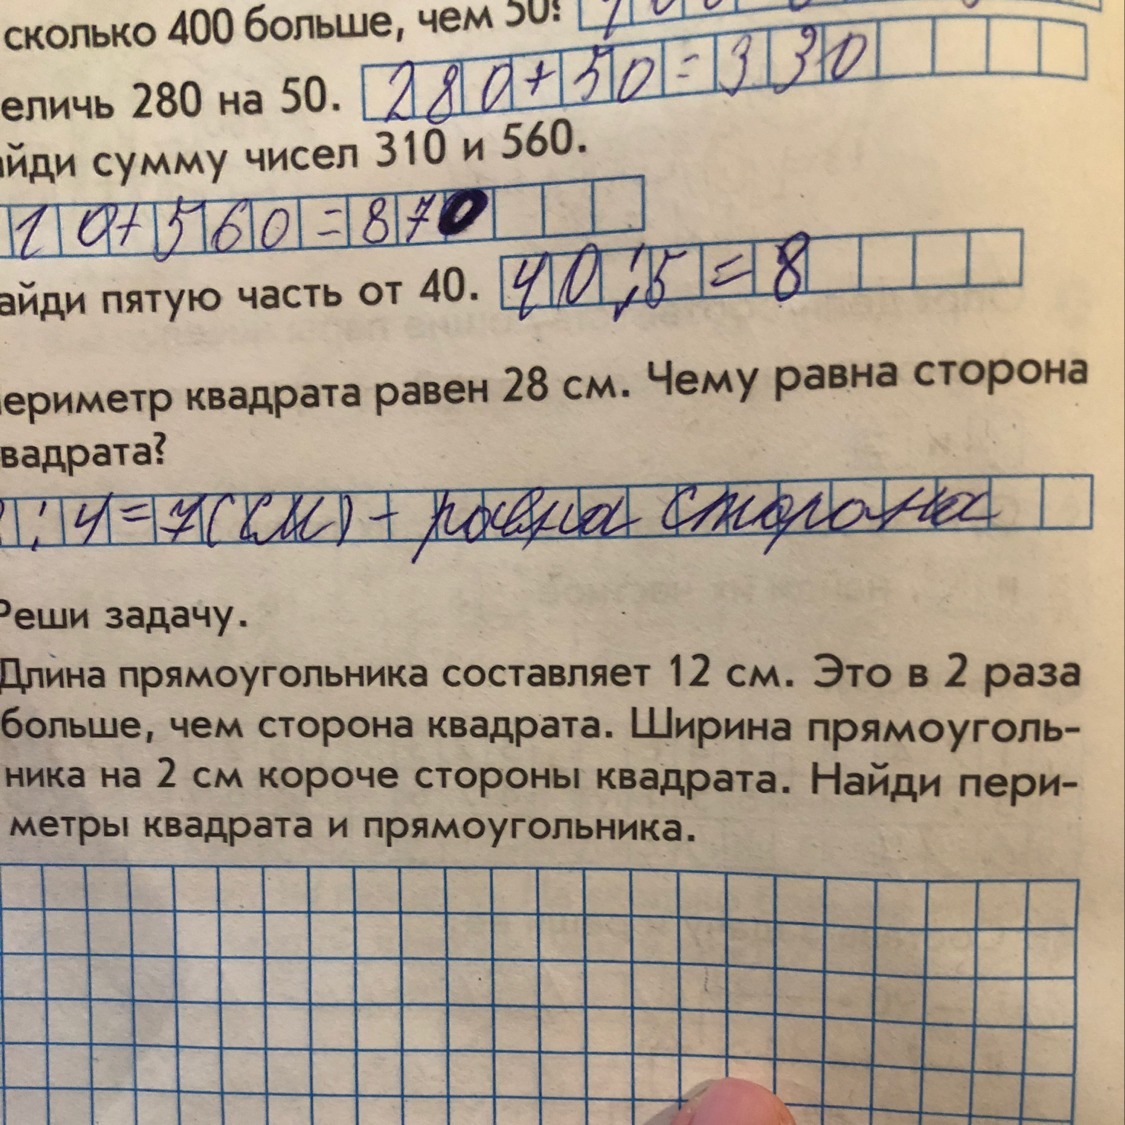 сколько 400 больше, чем 50?
еличь 280 на 50. 280+50=330
йди сумму чисел 310 и 560.
10+560=870
айди пятую часть от 40. 40:5=8
ериметр квадрата равен 28 см. Чему равна сторона
вадрата?
:4=7(см) - равна сторона
Реши задачу.
Длина прямоугольника составляет 12 см. Это в 2 раза
больше, чем сторона квадрата. Ширина прямоуголь-
ника на 2 см короче стороны квадрата. Найди пери-
метры квадрата и прямоугольника.